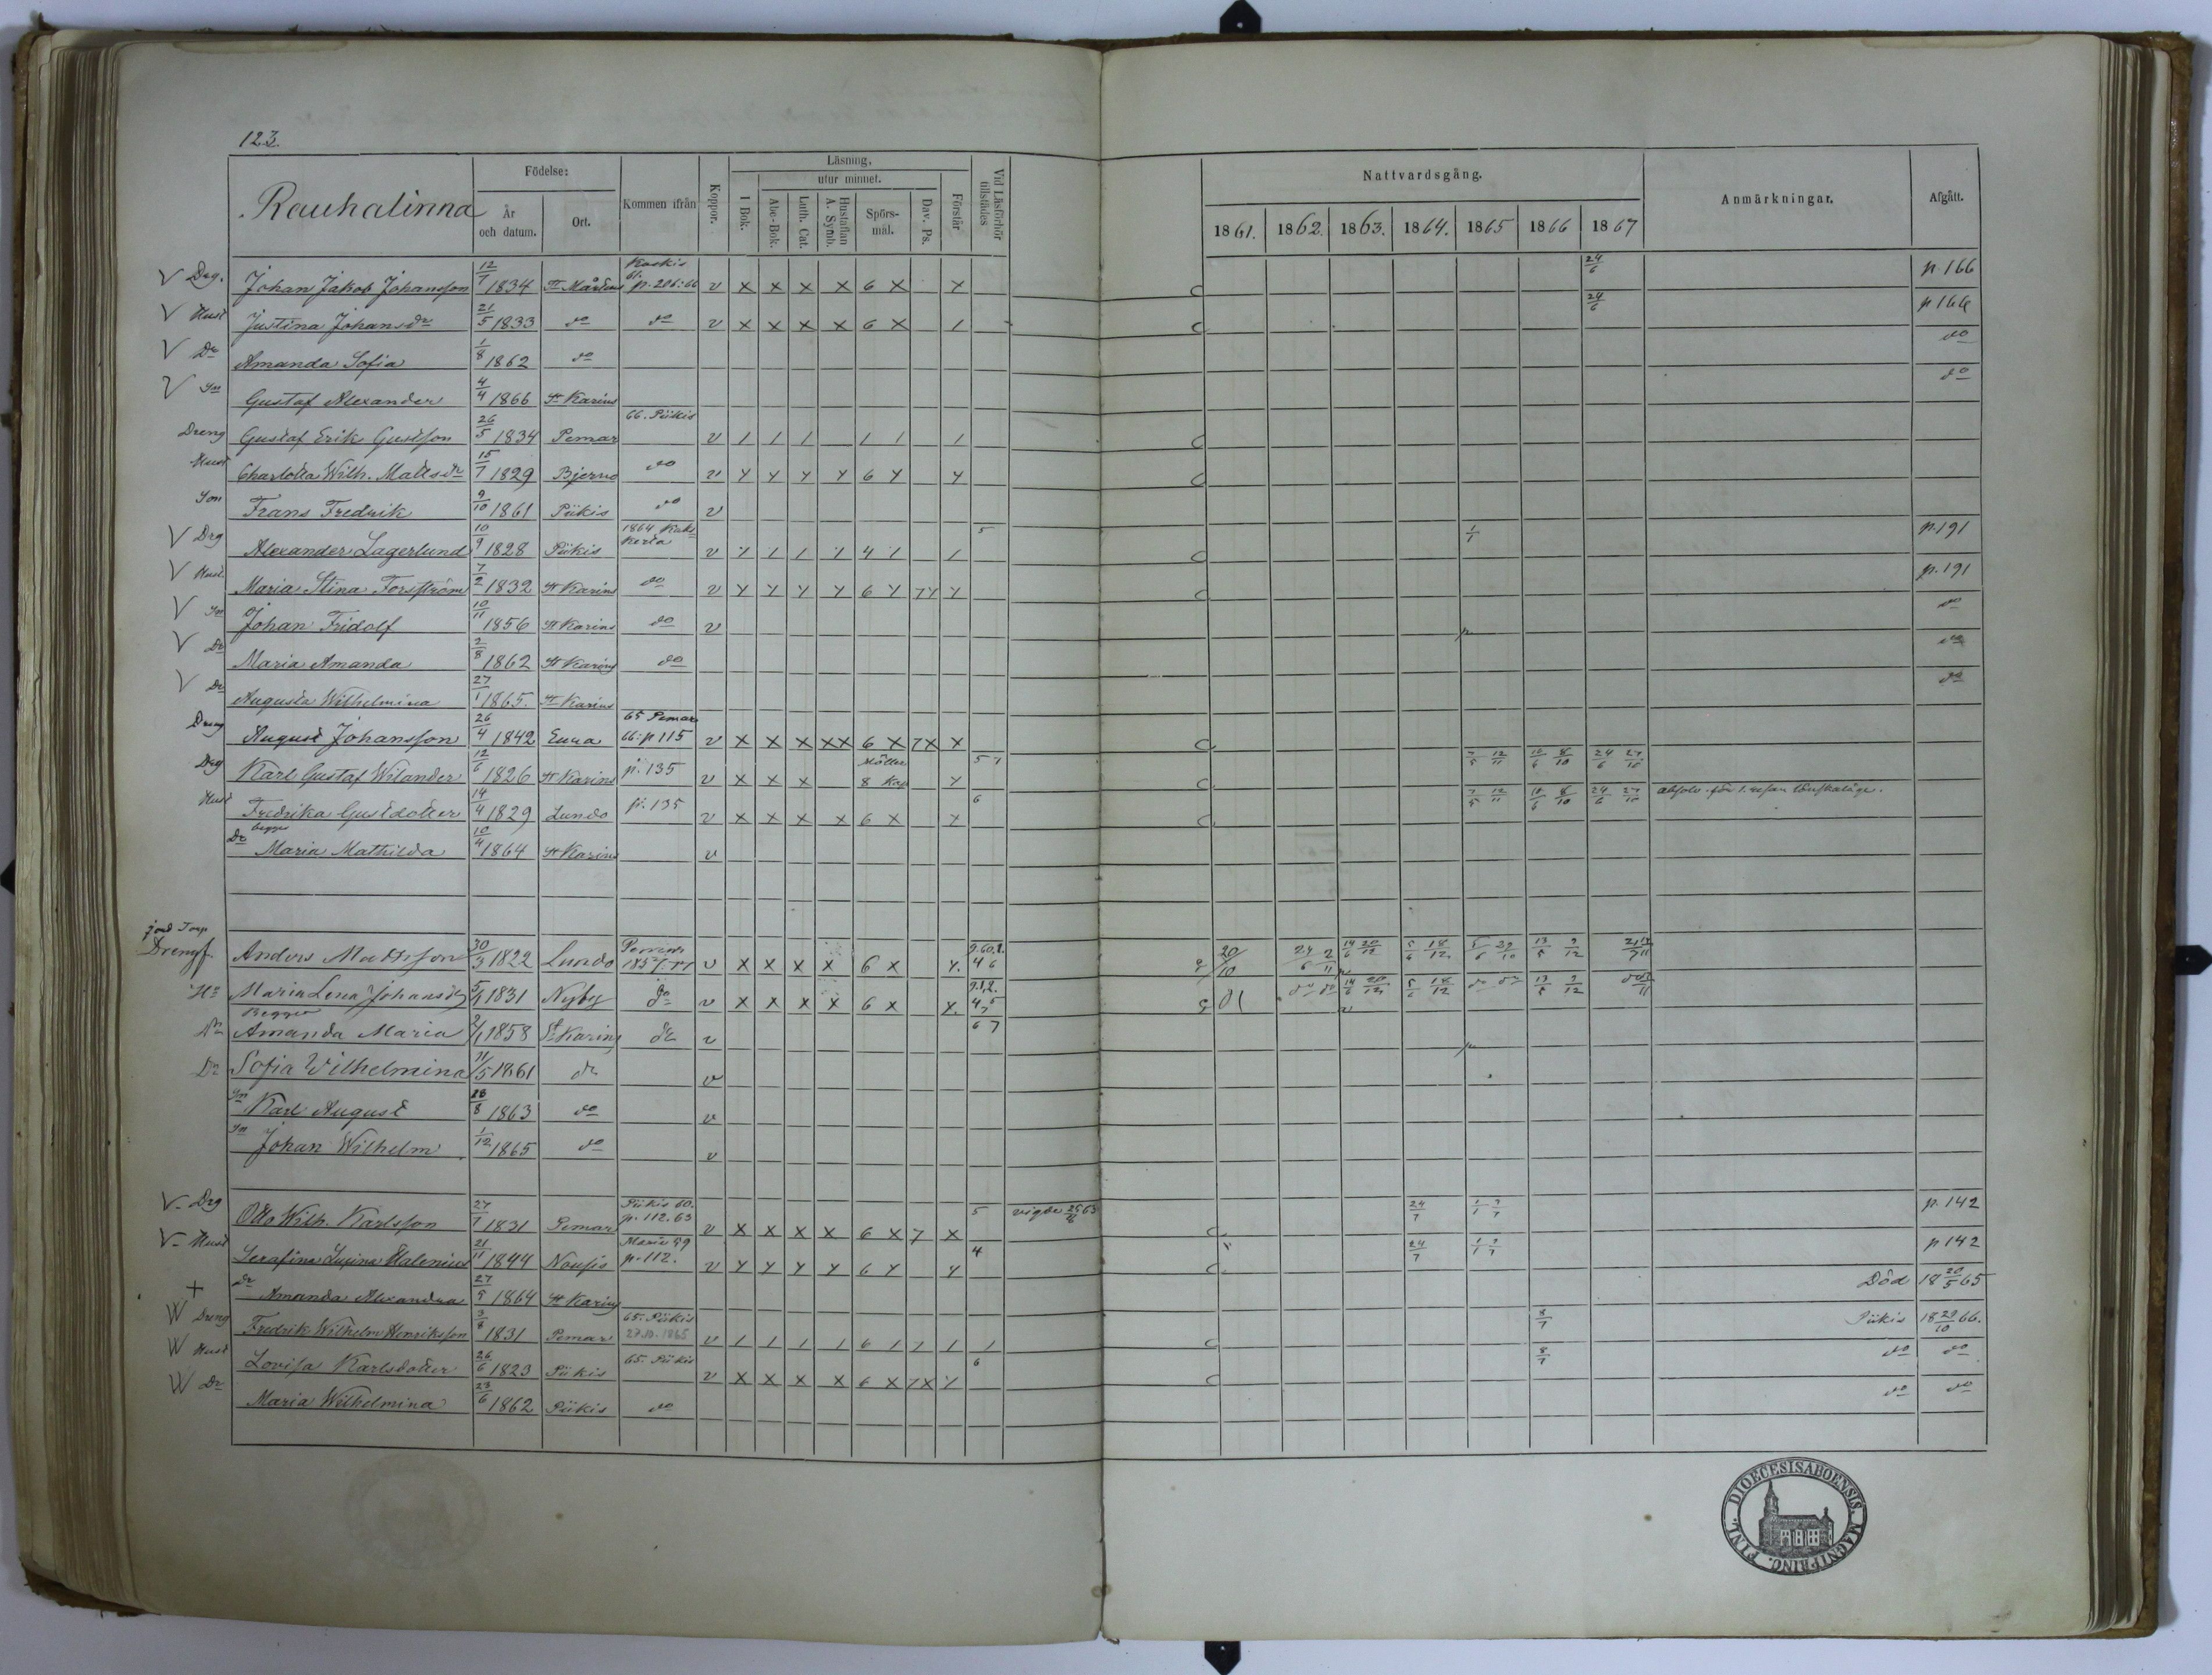 123.
Rauhalinna
Födelse:
År och datum.
Ort.
Kommen ifrån
Koppor.
Läsning,
utur minnet.
I Bok.
Abc-Bok.
Luth. Cat.
Hustaflan A. Symb.
Spörs-mål.
Dav. Ps.
Förstår
Vid Läsförhör tillstädes
Nattvardsgång.
1861. 1862. 1863. 1864. 1865 1866 1867
Anmärkningar.
Afgått.
V Drg. Johan Jakob Johansson 12/7 1834 St Mårtens p. 206: 66 v x x x x 6 x 24/6 p. 166
V Hust Justina Johansdr 21/5 1833 do do v x x x x 6 x 24/6 p 166
V Dr Amanda Sofia 1/8 1862 do do
V Sn Gustaf Alexander 4/4 1866 St Karins do
Dreng Gustaf Erik Gustfson 26/5 1834 Pemar 66. Piikis v
Hust Charlotta Wilh. Mattsdr 15/7 1829 Bjerno do v 6
Son Frans Fredrik 9/10 1861 Piikis do v
V Drg Alexander Lagerlund 10/9 1828 Piikis 1864 Kakskerta v 4 5 1/1 p. 191
V Hust. Maria Stina Forsström 7/2 1832 St Karins do v 6 p. 191
V Sn Johan Fridolf 10/11 1856 St Karins do v do
V Dr Maria Amanda 2/8 1862 St Karins do do
V Dr Augusta Wilhelmina 27/1 1865. St Karins do
Dreng August Johansson 26/4 1842 Eura 65 Pemar 66: p 115 v x x x xx 6 x 7x x
Drg Karl Gustaf Wilander 12/6 1826 St Karins p. 135 v x x x 8 Kap 5 7
Hust Fredrika Gustdotter 14/4 1829 Lundo p. 135 v x x x x 6 x 6 absolv. för 1. resan lönskaläge.
begges
Dr Maria Mathilda 10/4 1864 St Karins v
Drengf. Anders Mattsson 30/3 1822 Lundo v x x x x 6 x 4 6 20/10
Hu Maria Lena Johansdr 5/1 1831 Nyby do v x x x x 6 x
Begges
Dr Amanda Maria 2/1 1858 St Karins do v 6 7
Dr Sofia Wilhelmina 11/5 1861 do v
Sn Karl August 28/8 1863 do v
Sn Johan Wilhelm 1/12 1865 do v
V- Drg Otto Wilh. Karlsson 27/7 1831 Pemar Piikis 60. p. 112. 63 v x x x x 6 x 7 x 5 vigde 24/7 p. 142
V- Hust Serafina Halenius 21/11 1844 Nousis Marie 59 p. 112. v 6 4 24/7 p 142
+ dr Amanda Alexandra 27/5 1864 St Karins Död 18 20/5 65
W Dreng Fredrik Wilhelm Henriksson 3/8 1831 Pemar 65. Piikis 27.10.1865 v 6 8/7 Piikis 18 29/10 66.
W Hust Lovisa Karlsdotter 26/6 1823 Piikis 65. Piikis v x x x x 6 x 7x 6 8/7 do do
W Dr Maria Wilhelmina 23/6 1862 Piikis do do do
DIOECESIS ABOENSIS. MAGNI PRINC. FINL.